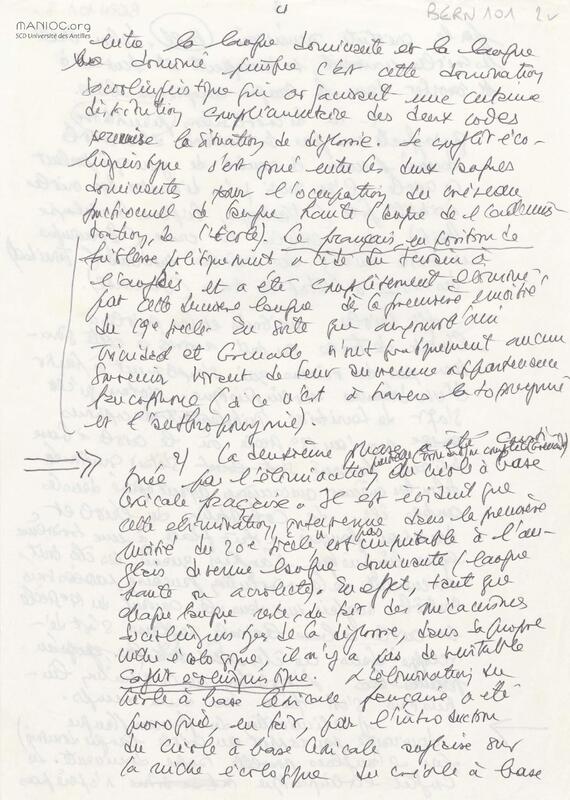 MANIOC.org
SCD Université des Antilles
BERN 101 2v
entre la langue dominante et la langue
dominée puisque c'est cette domination
sociolinguistique qui organisant une certaine
distribution complémentaire des deux codes
la situation de diglossie. Le conflit éco-
linguistique s'est joué entre les deux langues
dominantes pour l'occupation du créneau
fonctionnel de langue haute (langue de l'adminis-
tration, de l'école). Ce français, en position de
faiblesse politiquement a cédé du terrain à
l'anglais et a été complètement éliminé
par cette dernière langue dès la première moitié
du 19e siècle. En sorte que aujourd'hui
Trinidad et Grenade n'ont pratiquement aucun
souvenir vivant de leur ancienne appartenance
francophone (si ce n'est à travers la toponymie
et l'anthroponymie).
2) La deuxième phase a été consti-
tuée par l'élimination du créole à base
lexicale française. Il est évident que
cette élimination, intervenue dans la première
moitié du 20e siècle n'est pas imputable à l'an-
glais devenu langue dominante (langue
haute ou acrolecte). En effet, tant que
chaque langue reste, du fait des mécanismes
sociolinguistiques de la diglossie, dans sa propre
niche écologique, il n'y a pas de véritable
conflit écolinguistique. L'élimination du
créole à base lexicale française a été
provoquée, en fait, par l'introduction
du créole à base lexicale anglaise sur
la niche écologique du créole à base